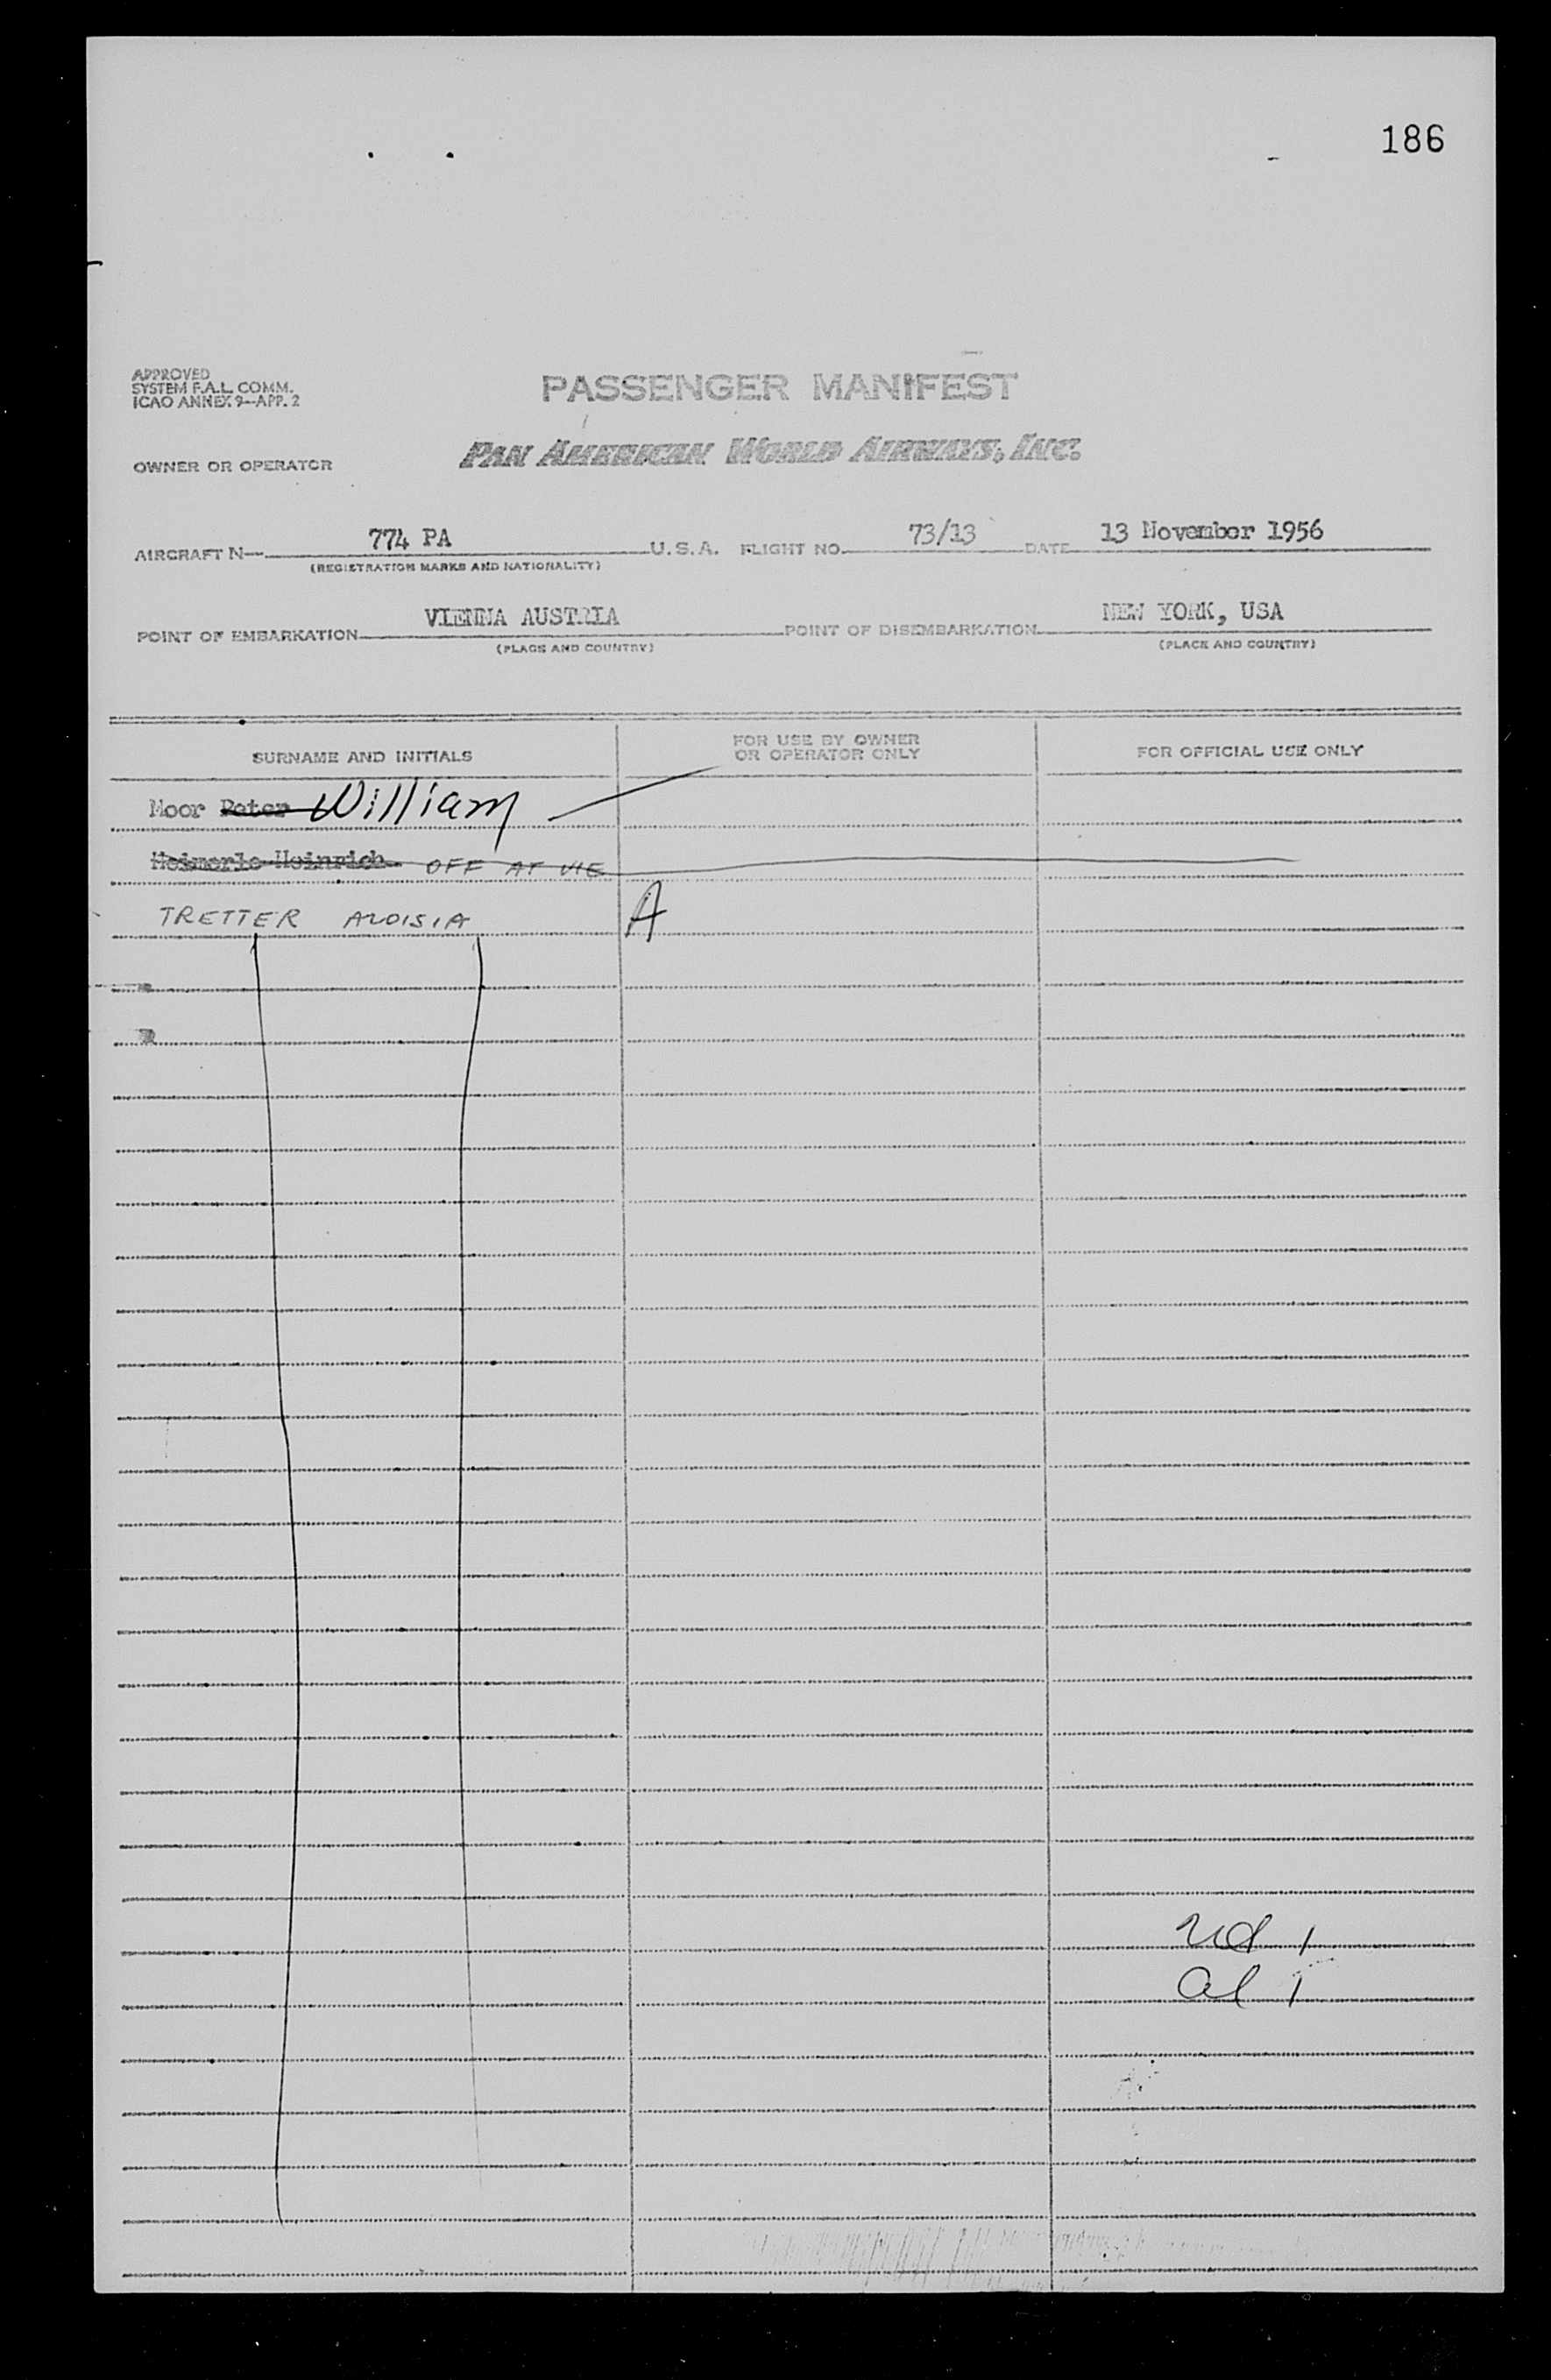 186
APPROVED
SYSTEM F.A.L. COMM.
ICAO ANNEX 9—APP. 2
PASSENGER MANIFEST
OWNER OR OPERATOR PAN AMERICAN WORLD AIRWAYS, INC.
AIRCRAFT N— 774 PA U.S.A. FLIGHT NO. 73/13 DATE 13 November 1956
(REGISTRATION MARKS AND NATIONALITY)
POINT OF EMBARKATION VIENNA AUSTRIA POINT OF DISEMBARKATION NEW YORK, USA
(PLACE AND COUNTRY) (PLACE AND COUNTRY)
SURNAME AND INITIALS FOR USE BY OWNER OR OPERATOR ONLY FOR OFFICIAL USE ONLY
Moor Peter William
Heinrich OFF AT VIE
TRETTER ALOISIA A
al 1